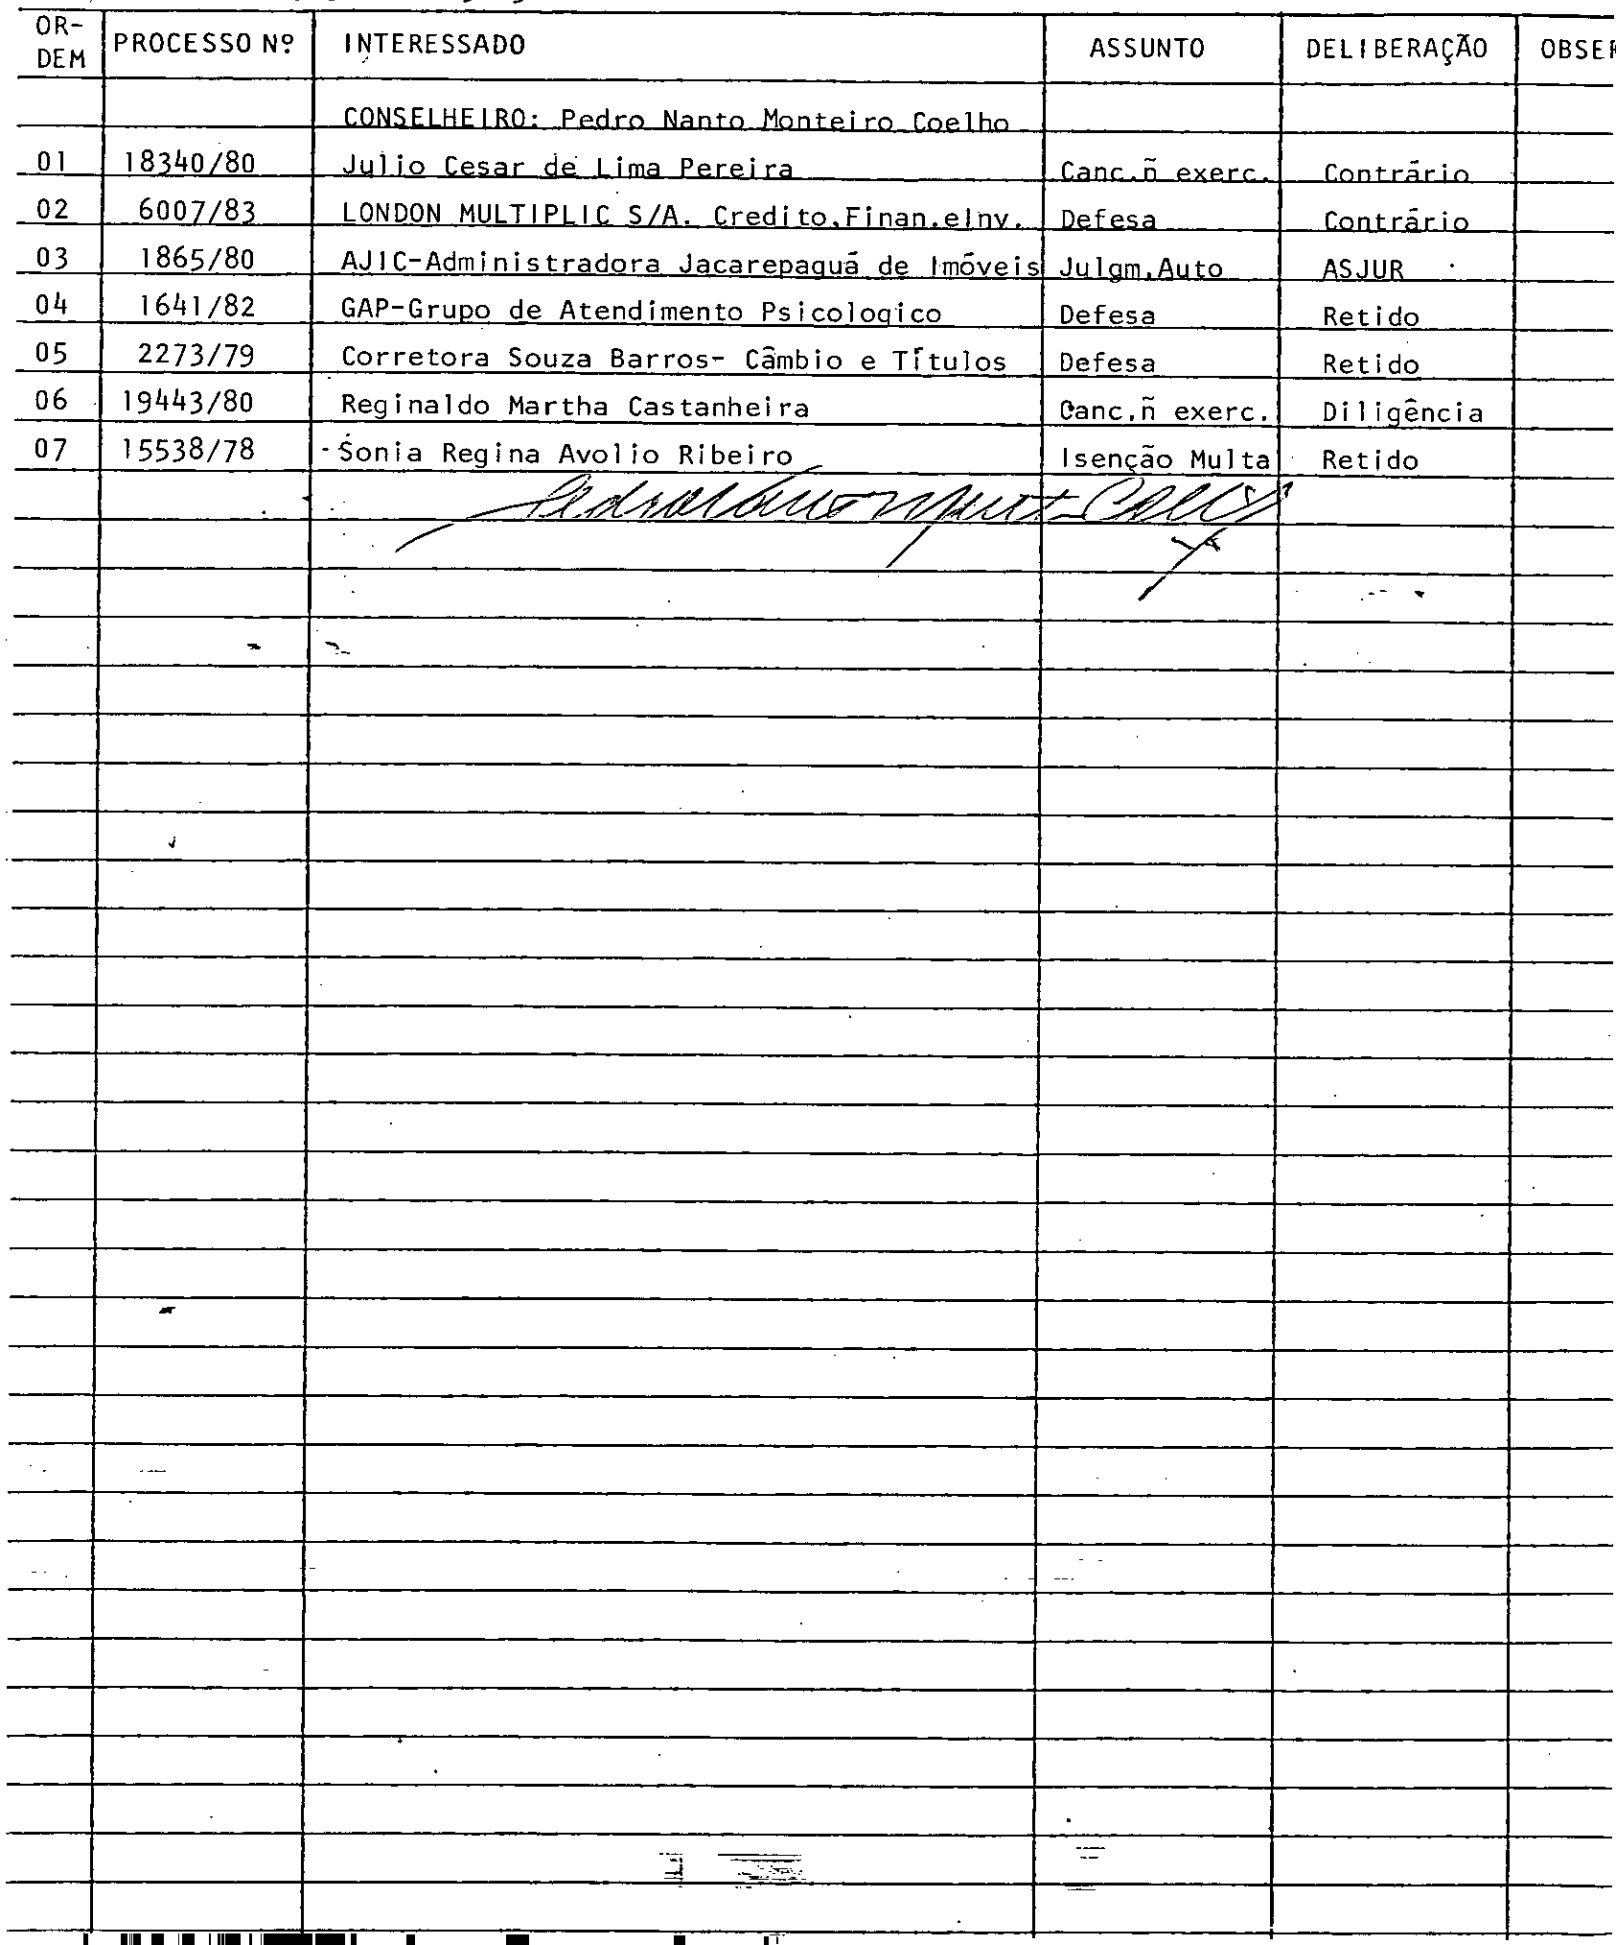 OR-
DEM PROCESSO Nº INTERESSADO ASSUNTO DELIBERAÇÃO OBSER
CONSELHEIRO: Pedro Nanto Monteiro Coelho
01 18340/80 Julio Cesar de Lima Pereira Canc.ñ exerc. Contrário
02 6007/83 LONDON MULTIPLIC S/A. Credito,Finan.eInv. Defesa Contrário
03 1865/80 AJIC-Administradora Jacarepaguá de Imóveis Julgm.Auto ASJUR
04 1641/82 GAP-Grupo de Atendimento Psicologico Defesa Retido
05 2273/79 Corretora Souza Barros- Câmbio e Títulos Defesa Retido
06 19443/80 Reginaldo Martha Castanheira Canc.ñ exerc. Diligência
07 15538/78 -Sonia Regina Avolio Ribeiro Isenção Multa Retido